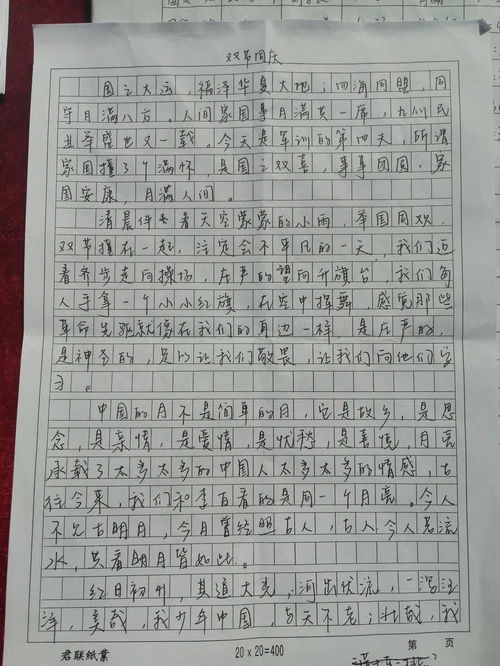 双节同庆
国之大运，福泽华夏大地；四海同盟，同
字月满八方。人间家国事月满共一席，九州民
生举盛世又一载。今天是军训的第四天，所谓
家国撞了个满怀，是国之双喜，事事团圆，家
国安康，月满人间。
清晨伴着天空蒙蒙的小雨，举国同欢，
双节撞在一起，注定会不平凡的一天，我们迈
着齐步走向操场，庄严的望向升旗台，我们每
人手拿一个小小红旗，在空中挥舞，感觉那些
革命先驱就像在我们的身边一样，是庄严的，
是神圣的，足以让我们敬畏，让我们向他们学
习。
中国的月不是简单的月，它是故乡，是思
念，是亲情，是爱情，是忧愁，是喜悦，月亮
承载了太多太多的中国人太多太多的情感，古
往今来，我们和李白看的是同一个月亮。今人
不见古时月，今月曾经照古人，古人今人若流
水，共看明月皆如此。
红日初升，其道大光，河出伏流，一泻汪
洋，美哉，我少年中国，与天不老；壮哉，我
君联纸业 20×20=400 第 页